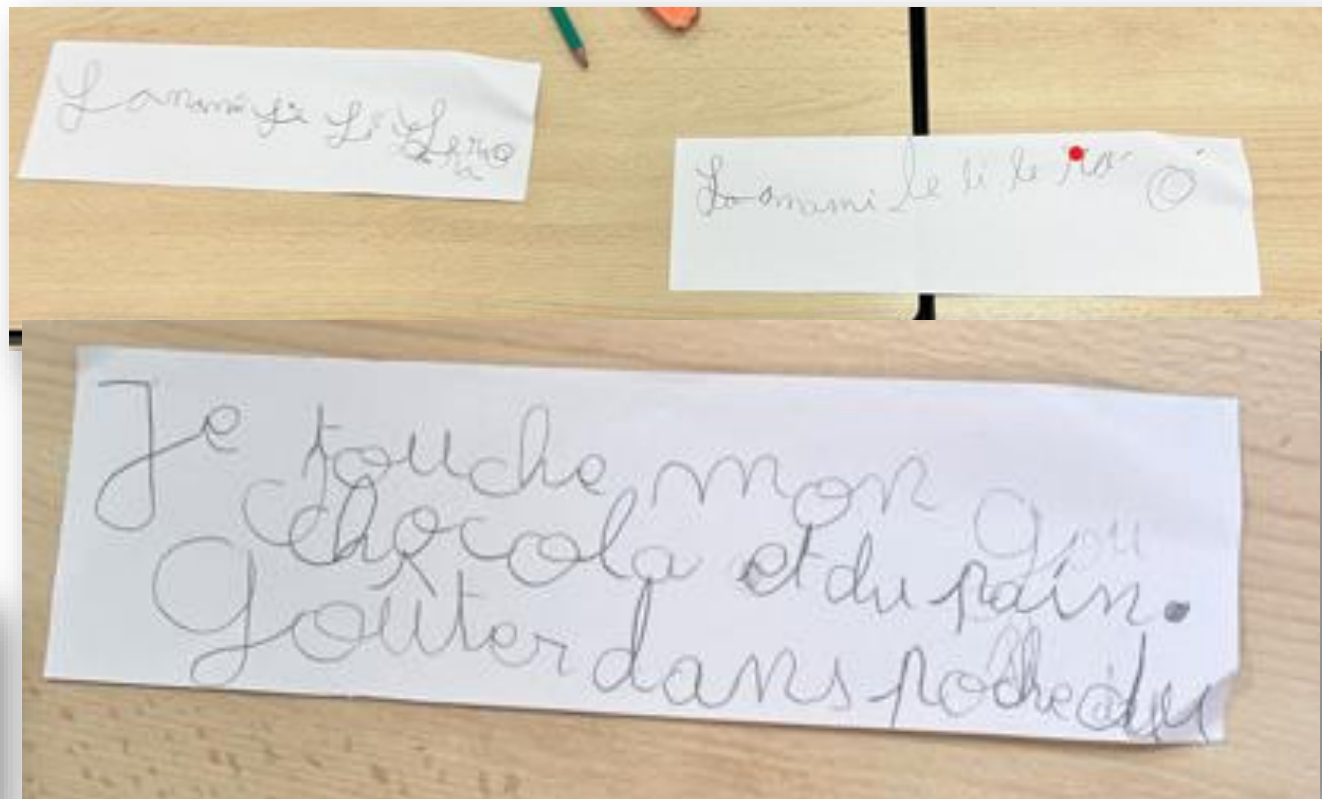 La mami
La mami le li le ra O
Je touche mon gou
chocola et du pain.
goûter dans poche du